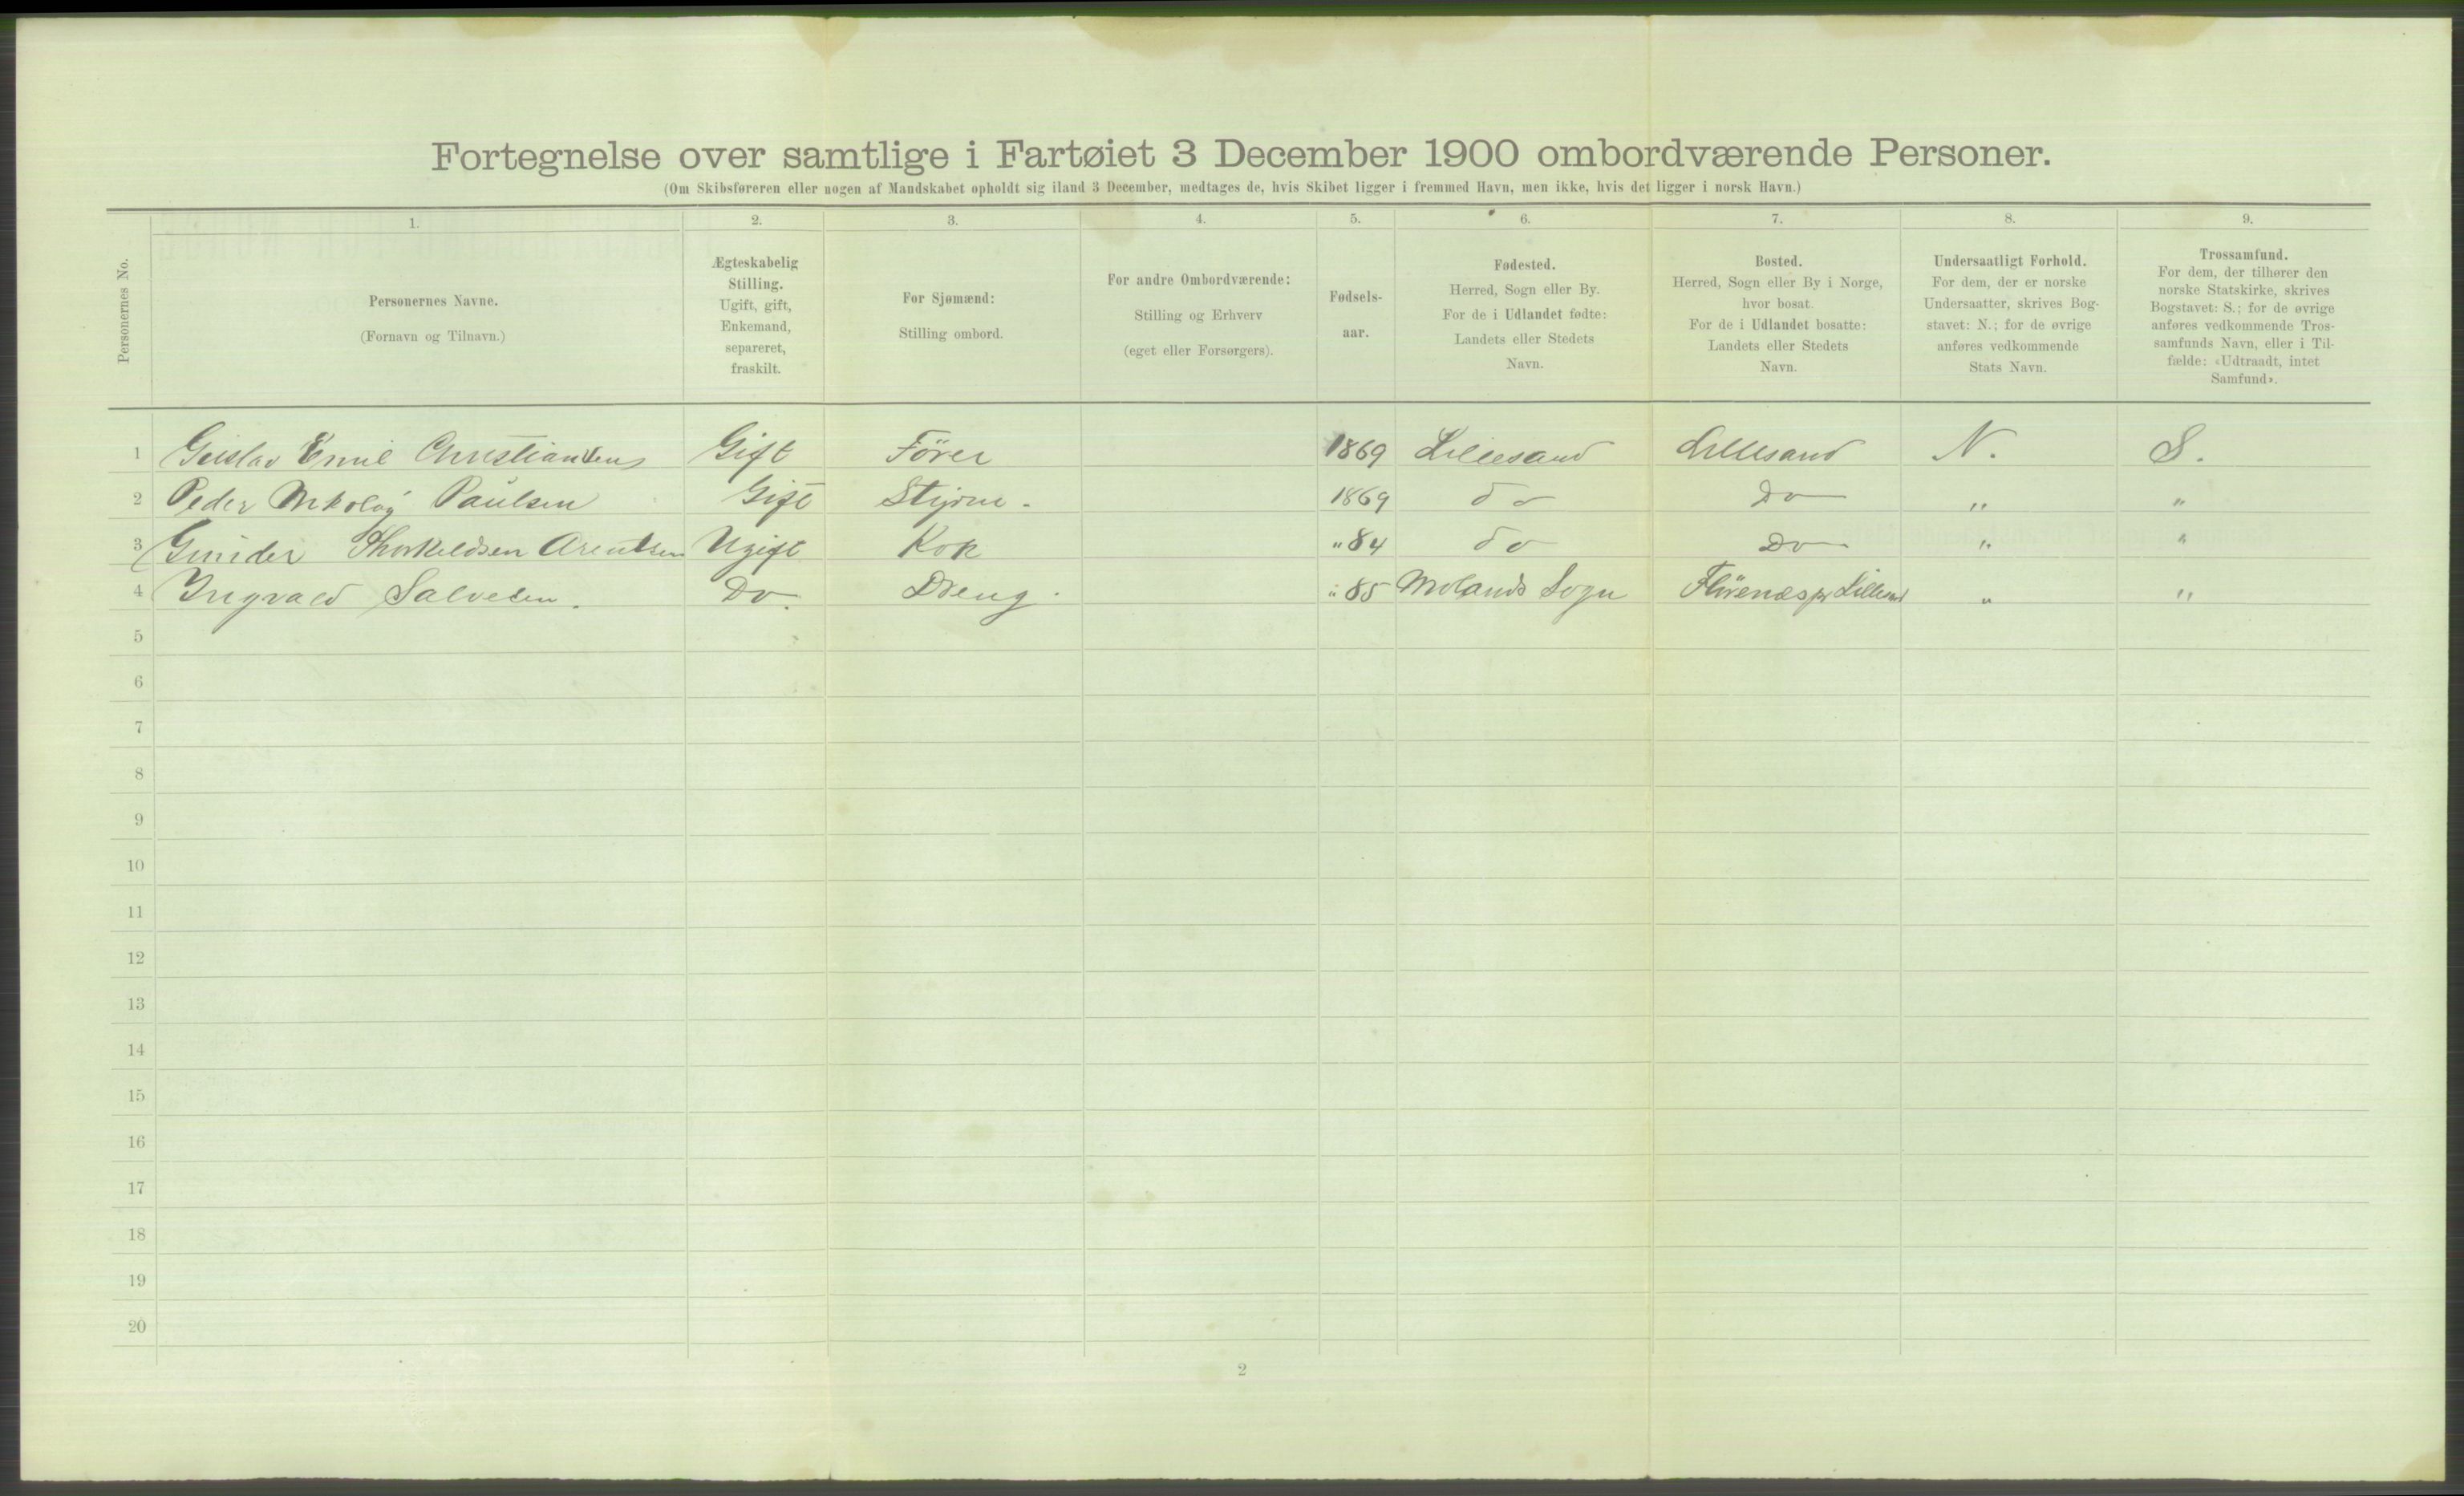 Fortegnelse over samtlige i Fartøiet 3 December 1900 ombordværende Personer.
(Om Skibsføreren eller nogen af Mandskabet opholdt sig iland 3 December, medtages de, hvis Skibet ligger i fremmed Havn, men ikke, hvis det ligger i norsk Havn.)
Personernes No.
1.
Personernes Navne.
(Fornavn og Tilnavn.)
2.
Ægteskabelig
Stilling.
Ugift, gift,
Enkemand,
separeret,
fraskilt.
3.
For Sjømænd:
Stilling ombord.
4.
For andre Ombordværende:
Stilling og Erhverv
(eget eller Forsørgers).
5.
Fødsels-
aar.
6.
Fødested.
Herred, Sogn eller By.
For de i Udlandet fødte:
Landets eller Stedets
Navn.
7.
Bosted.
Herred, Sogn eller By i Norge,
hvor bosat.
For de i Udlandet bosatte:
Landets eller Stedets
Navn.
8.
Undersaatligt Forhold.
For dem, der er norske
Undersaatter, skrives Bog-
stavet: N.; for de øvrige
anføres vedkommende
Stats Navn.
9.
Trossamfund.
For dem, der tilhører den
norske Statskirke, skrives
Bogstavet: S.; for de øvrige
anføres vedkommende Tros-
samfunds Navn, eller i Til-
fælde: «Udtraadt, intet
Samfund».
1 Emil Christiansen Gift Förer 1869 Lillesand Lillesand N. S.
2 Peder Nikolay Paulsen Gift Styrm. 1869 do Do " "
3 Gunder Thorkeldsen Arentsen Ugift Kok " 84 do Do " "
4 Ingvald Salvesen. Do. Dreng. " 85 Molands Sogn Lillesand " "
5
6
7
8
9
10
11
12
13
14
15
16
17
18
19
20
2